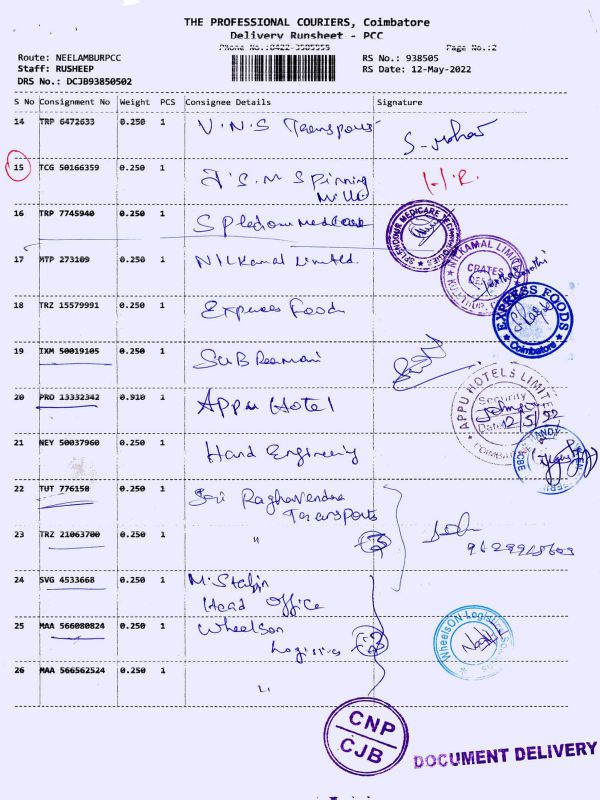 THE PROFESSIONAL COURIERS, Coimbatore
Delivery Runsheet - PCC
Phone No.:0422-3505555 Page No.:2
Route: NEELAMBURPCC RS No.: 938505
Staff: RUSHEEP RS Date: 12-May-2022
DRS No.: DCJB93850502
S No Consignment No Weight PCS Consignee Details Signature
14 TRP 6472633 0.250 1 V.N.S Transports S-Mohan
15 TCG 50166359 0.250 1 J.S.M Spinning Mills H.R.
16 TRP 7745940 0.250 1 Spledour Medicare
SPLENDOUR MEDICARE TECHNOLOGIES
17 MTP 273109 0.250 1 Nilkamal Limited.
NILKAMAL LIMITED
CRATES
18 TRZ 15579991 0.250 1 Express Food
EXPRESS FOODS
Coimbatore
19 IXM 50019105 0.250 1 Sub Reemani
20 PRO 13332342 0.910 1 Appu Hotel
APPU HOTELS LIMITED
Security
Date 12/5/22
21 NEY 50037960 0.250 1 Hand Engineering
22 TUT 776150 0.250 1 Sri Raghavendra Transports
23 TRZ 21063700 0.250 1 " 3
24 SVG 4533668 0.250 1 M. Stalin Head Office
25 MAA 566080824 0.250 1 Wheelson Logistics
WheelsON Logistics
26 MAA 566562524 0.250 1
CNP
CJB
DOCUMENT DELIVERY